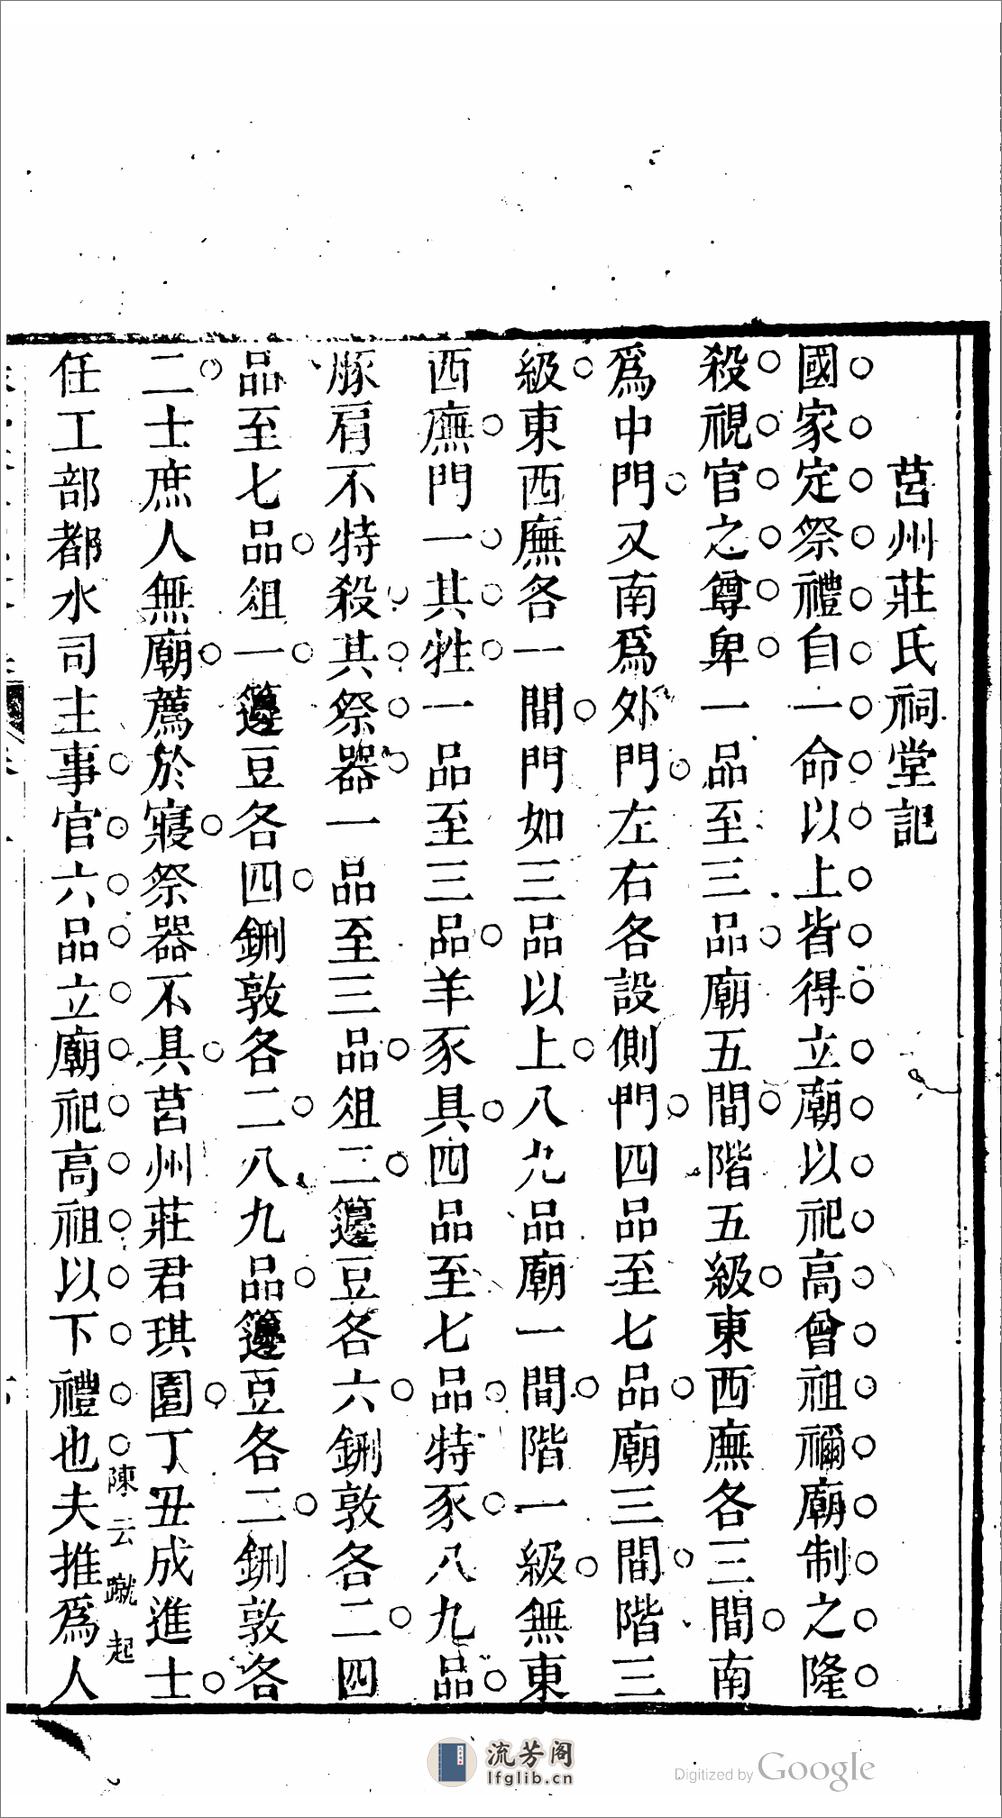 莒州莊氏祠堂記
國家定祭禮自一命以上皆得立廟以祀高曾祖禰廟制之隆
殺視官之尊卑一品至三品廟五間階五級東西廡各三間南
爲中門又南爲外門左右各設側門四品至七品廟三間階三
級東西廡各一間門如三品以上八九品廟一間階一級無東
西廡門一其牲一品至三品羊豕具四品至七品特豕八九品
豚肩不特殺其祭器一品至三品俎二籩豆各六鉶敦各二四
品至七品俎一籩豆各四鉶敦各二八九品籩豆各二鉶敦各
二士庶人無廟薦於寢祭器不具莒州莊君琪園丁丑成進士
任工部都水司主事官六品立廟祀高祖以下禮也
陳云蹴起
夫推爲人
流芳阁
lfglib.cn
Digitized by Google